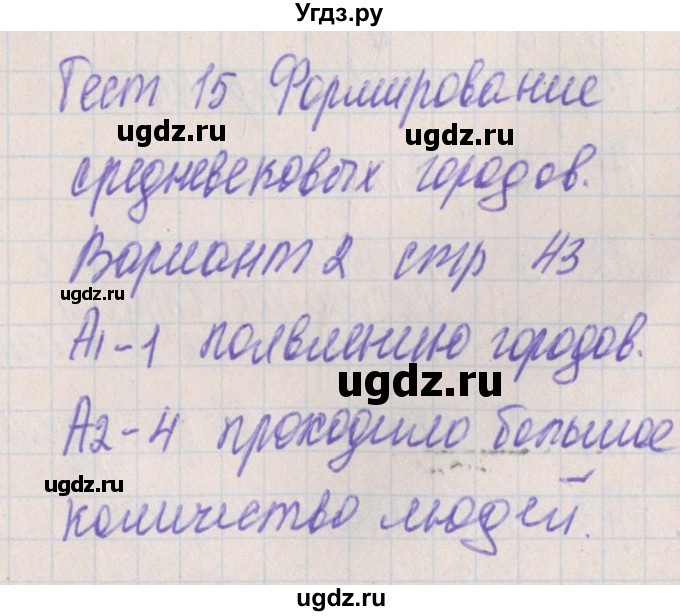 Угдз.ру
Тест 15 Формирование
ugdz.ru ugdz.ru
средневековых городов.
Вариант 2 стр 43
ugdz.ru
А1-1 появлению городов.
ugdz.ru
А2-4 проходило большое
ugdz.ru
количество людей.
ugdz.ru